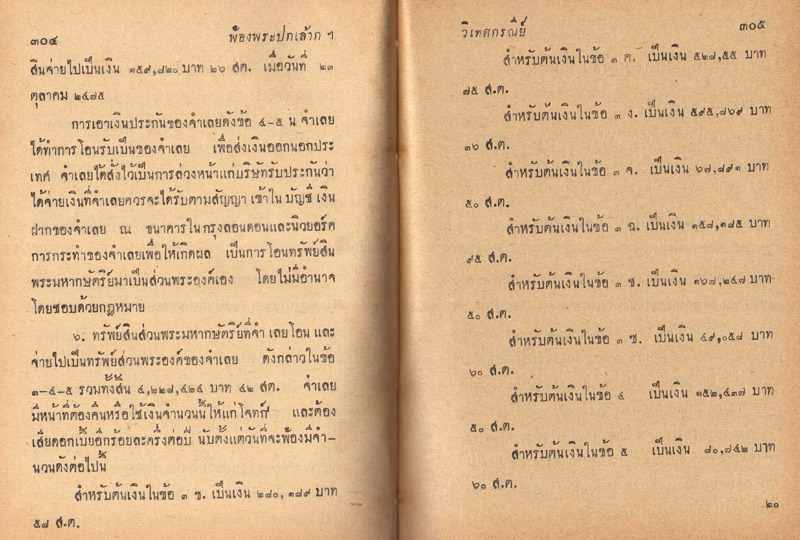 ๓๐๔ ฟ้องพระปกเล้าก ฯ
สินจ่ายไปเป็นเงิน ๑๕๙,๘๒๐ บาท ๒๖ สต. เมื่อวันที่ ๒๓
ตุลาคม ๒๔๗๕
การเอาเงินประกันของจำเลยดังข้อ ๔-๕ น จำเลย
ได้ทำการโอนรับเป็นของจำเลย เพื่อส่งเงินออกนอกประ
เทศ จำเลยได้สั่งไว้เป็นการล่วงหน้าแก่บริษัทรับประกันว่า
ได้จ่ายเงินที่จำเลยควรจะได้รับตามสัญญา เข้าใน บัญชี เงิน
ฝากของจำเลย ณ ธนาคารในกรุงลอนดอนและนิวยอร์ค
การกระทำของจำเลยเพื่อให้เกิดผล เป็นการโอนทรัพย์สิน
พระมหากษัตรีย์มาเป็นส่วนพระองค์เอง โดยไม่มีอำนาจ
โดยชอบด้วยกฎหมาย
๖. ทรัพย์สินส่วนพระมหากษัตริย์ที่จำ เลยโอน และ
จ่ายไปเป็นทรัพย์ส่วนพระองค์ของจำเลย ดังกล่าวในข้อ
๓-๔-๕ รวมทั้งสิ้น ๔,๒๒๘,๔๒๔ บาท ๔๒ สต. จำเลย
มีหน้าที่ต้องคืนหรือใช้เงินจำนวนนี้ให้แก่โจทก์ และต้อง
เสียดอกเบี้ยอีกร้อยละครึ่งต่อปี นับตั้งแต่วันที่จะฟ้องมีจำ-
นวนดังต่อไปนี้
สำหรับต้นเงินในข้อ ๓ ซ. เป็นเงิน ๒๘๐,๑๘๙ บาท
๕๘ ส.ต.
วิเทศกรณีย์ ๓๐๕
สำหรับต้นเงินในข้อ ๓ ค. เป็นเงิน ๕๒๘,๕๕ บาท
๗๕ ส.ต.
สำหรับต้นเงินในข้อ ๓ ง. เป็นเงิน ๕๙๕,๘๖๙ บาท
๓๖ ส.ต.
สำหรับต้นเงินในข้อ ๓ จ. เป็นเงิน ๖๗,๘๙๑ บาท
๕๐ ส.ต.
สำหรับต้นเงินในข้อ ๓ ฉ. เป็นเงิน ๑๕๘,๑๘๕ บาท
๙๕ ส.ต.
สำหรับต้นเงินในข้อ ๓ ช. เป็นเงิน ๑๖๘,๒๔๗ บาท
๕๐ ส.ต.
สำหรับต้นเงินในข้อ ๓ ซ. เป็นเงิน ๔๙,๐๕๘ บาท
๖๐ ส.ต.
สำหรับต้นเงินในข้อ ๔ เป็นเงิน ๑๕๒,๔๓๗ บาท
๕๐ ส.ต.
สำหรับต้นเงินในข้อ ๕ เป็นเงิน ๘๐,๘๔๒ บาท
๖๐ ส.ต.
๒๐